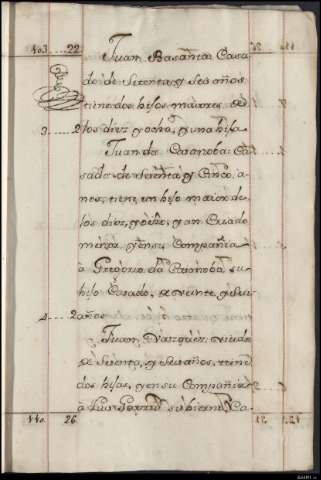 403 22 Juan Basanta Casa
do de Setenta, y Seis años
tiene dos hijos maiores de
3 2 los diez y ocho, y una hija
Juan da Casanoba Ca
sado de setenta y Cinco a
nos, tiene un hijo maior de
los diez, y ocho, y un Criado
menor, y en su Compañia
à Gregorio da Casanoba su
hijo Casado, de veinte, y seis
4 2 años
Juan Vazquez, viudo
de Setenta, y seis años, tiene
dos hijas, y en su Compañia
440 26 à Luis su hierno Ca